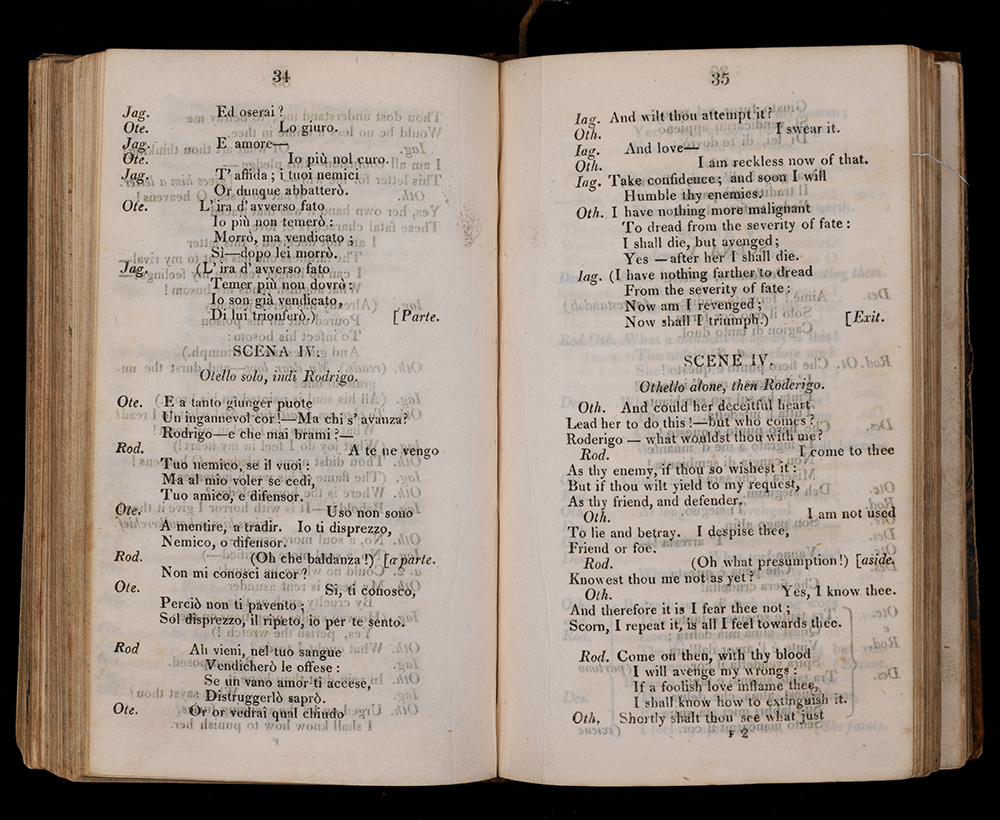 34
Jag. Ed oserai?
Ote. Lo giuro.
Jag. E amore—
Ote. Io più nol curo.
Jag. T' affida; i tuoi nemici
Or dunque abbatterò.
Ote. L' ira d' avverso fato
Io più non temerò:
Morrò, ma vendicato;
Sì—dopo lei morrò.
Jag. (L' ira d' avverso fato
Temer più non dovrò:
Io son già vendicato,
Di lui trionferò.) [Parte.
SCENA IV.
Otello solo, indi Rodrigo.
Ote. E a tanto giunger puote
Un ingannevol cor!—Ma chi s' avanza?
Rodrigo—e che mai brami?—
Rod. A te ne vengo
Tuo nemico, se il vuoi:
Ma al mio voler se cedi,
Tuo amico, e difensor.
Ote. Uso non sono
A mentire, a tradir. Io ti disprezzo,
Nemico, o difensor.
Rod. (Oh che baldanza!) [a parte.
Non mi conosci ancor?
Ote. Sì, ti conosco,
Perciò non ti pavento;
Sol disprezzo, il ripeto, io per te sento.
Rod Ah vieni, nel tuo sangue
Vendicherò le offese:
Se un vano amor ti accese,
Distruggerlò saprò.
Ote. Or or vedrai qual chiudo
35
Iag. And wilt thou attempt it?
Oth. I swear it.
Iag. And love—
Oth. I am reckless now of that.
Iag. Take confidence; and soon I will
Humble thy enemies.
Oth. I have nothing more malignant
To dread from the severity of fate:
I shall die, but avenged;
Yes—after her I shall die.
Iag. (I have nothing farther to dread
From the severity of fate:
Now am I revenged;
Now shall I triumph.) [Exit.
SCENE IV.
Othello alone, then Roderigo.
Oth. And could her deceitful heart
Lead her to do this!—but who comes?
Roderigo—what wouldst thou with me?
Rod. I come to thee
As thy enemy, if thou so wishest it:
But if thou wilt yield to my request,
As thy friend, and defender.
Oth. I am not used
To lie and betray. I despise thee,
Friend or foe.
Rod. (Oh what presumption!) [aside.
Knowest thou me not as yet?
Oth. Yes, I know thee.
And therefore it is I fear thee not;
Scorn, I repeat it, is all I feel towards thee.
Rod. Come on then, with thy blood
I will avenge my wrongs:
If a foolish love inflame thee,
I shall know how to extinguish it.
Oth. Shortly shalt thou see what just
F 2